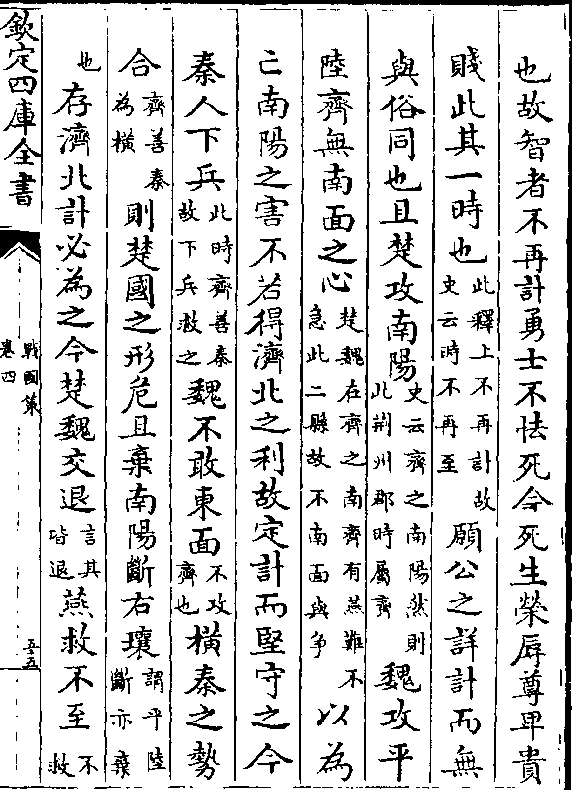 也故智者不再計勇士不怯死今死生榮辱尊卑貴
賤此其一時也此釋上不再計故史云時不再至願公之詳計而無
與俗同也且楚攻南陽史云齊之南陽然則此荆州郡時屬齊魏攻平
陸齊無南面之心楚魏在齊之南齊有燕難不急此二縣故不南面與爭以為
亡南陽之害不若得濟北之利故定計而堅守之今
秦人下兵此時齊善秦故下兵救之魏不敢東面不攻齊也橫秦之勢
合齊善秦為橫則楚國之形危且棄南陽斷右壤謂平陸斷亦棄
也存濟北計必為之今楚魏交退言其皆退燕救不至不救
欽定四庫全書
戰國策
卷四
五五